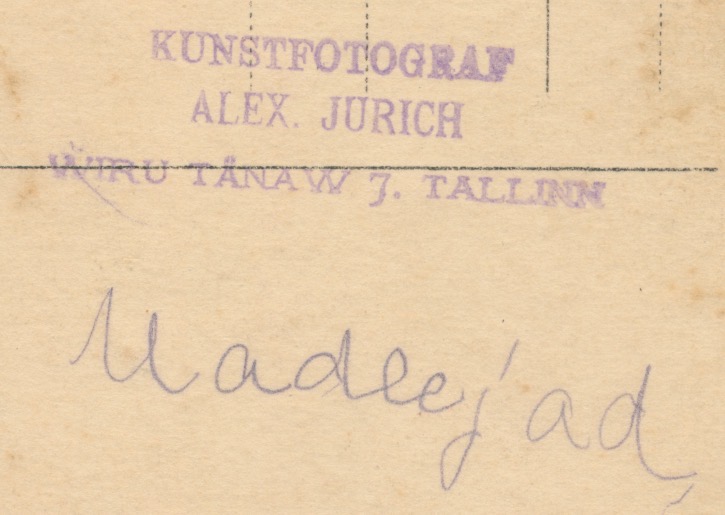 KUNSTFOTOGRAF
ALEX. JURICH
WIRU TÅNAW 7. TALLINN
Madlejad,